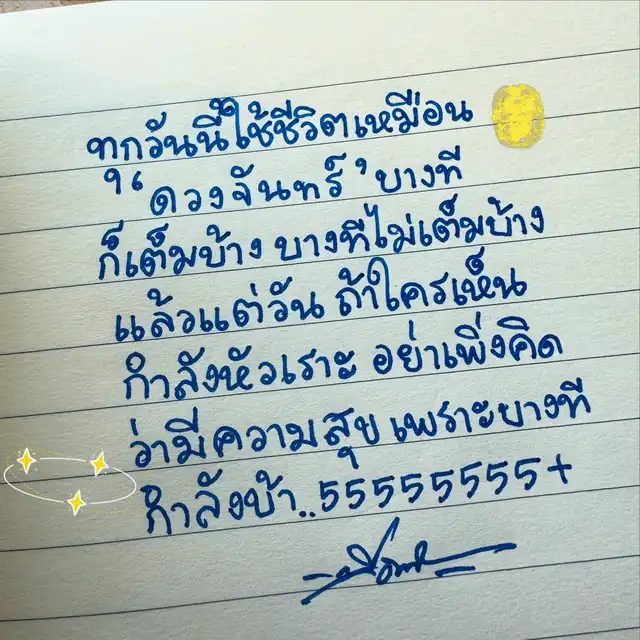 ทุกวันนี้ใช้ชีวิตเหมือน
“ดวงจันทร์’ บางที
ก็เต็มบ้าง บางทีไม่เต็มบ้าง
แล้วแต่วัน ถ้าใครเห็น
กำลังหัวเราะ อย่าเพิ่งคิด
ว่ามีความสุข เพราะบางที
กำลังบ้า..55555555+